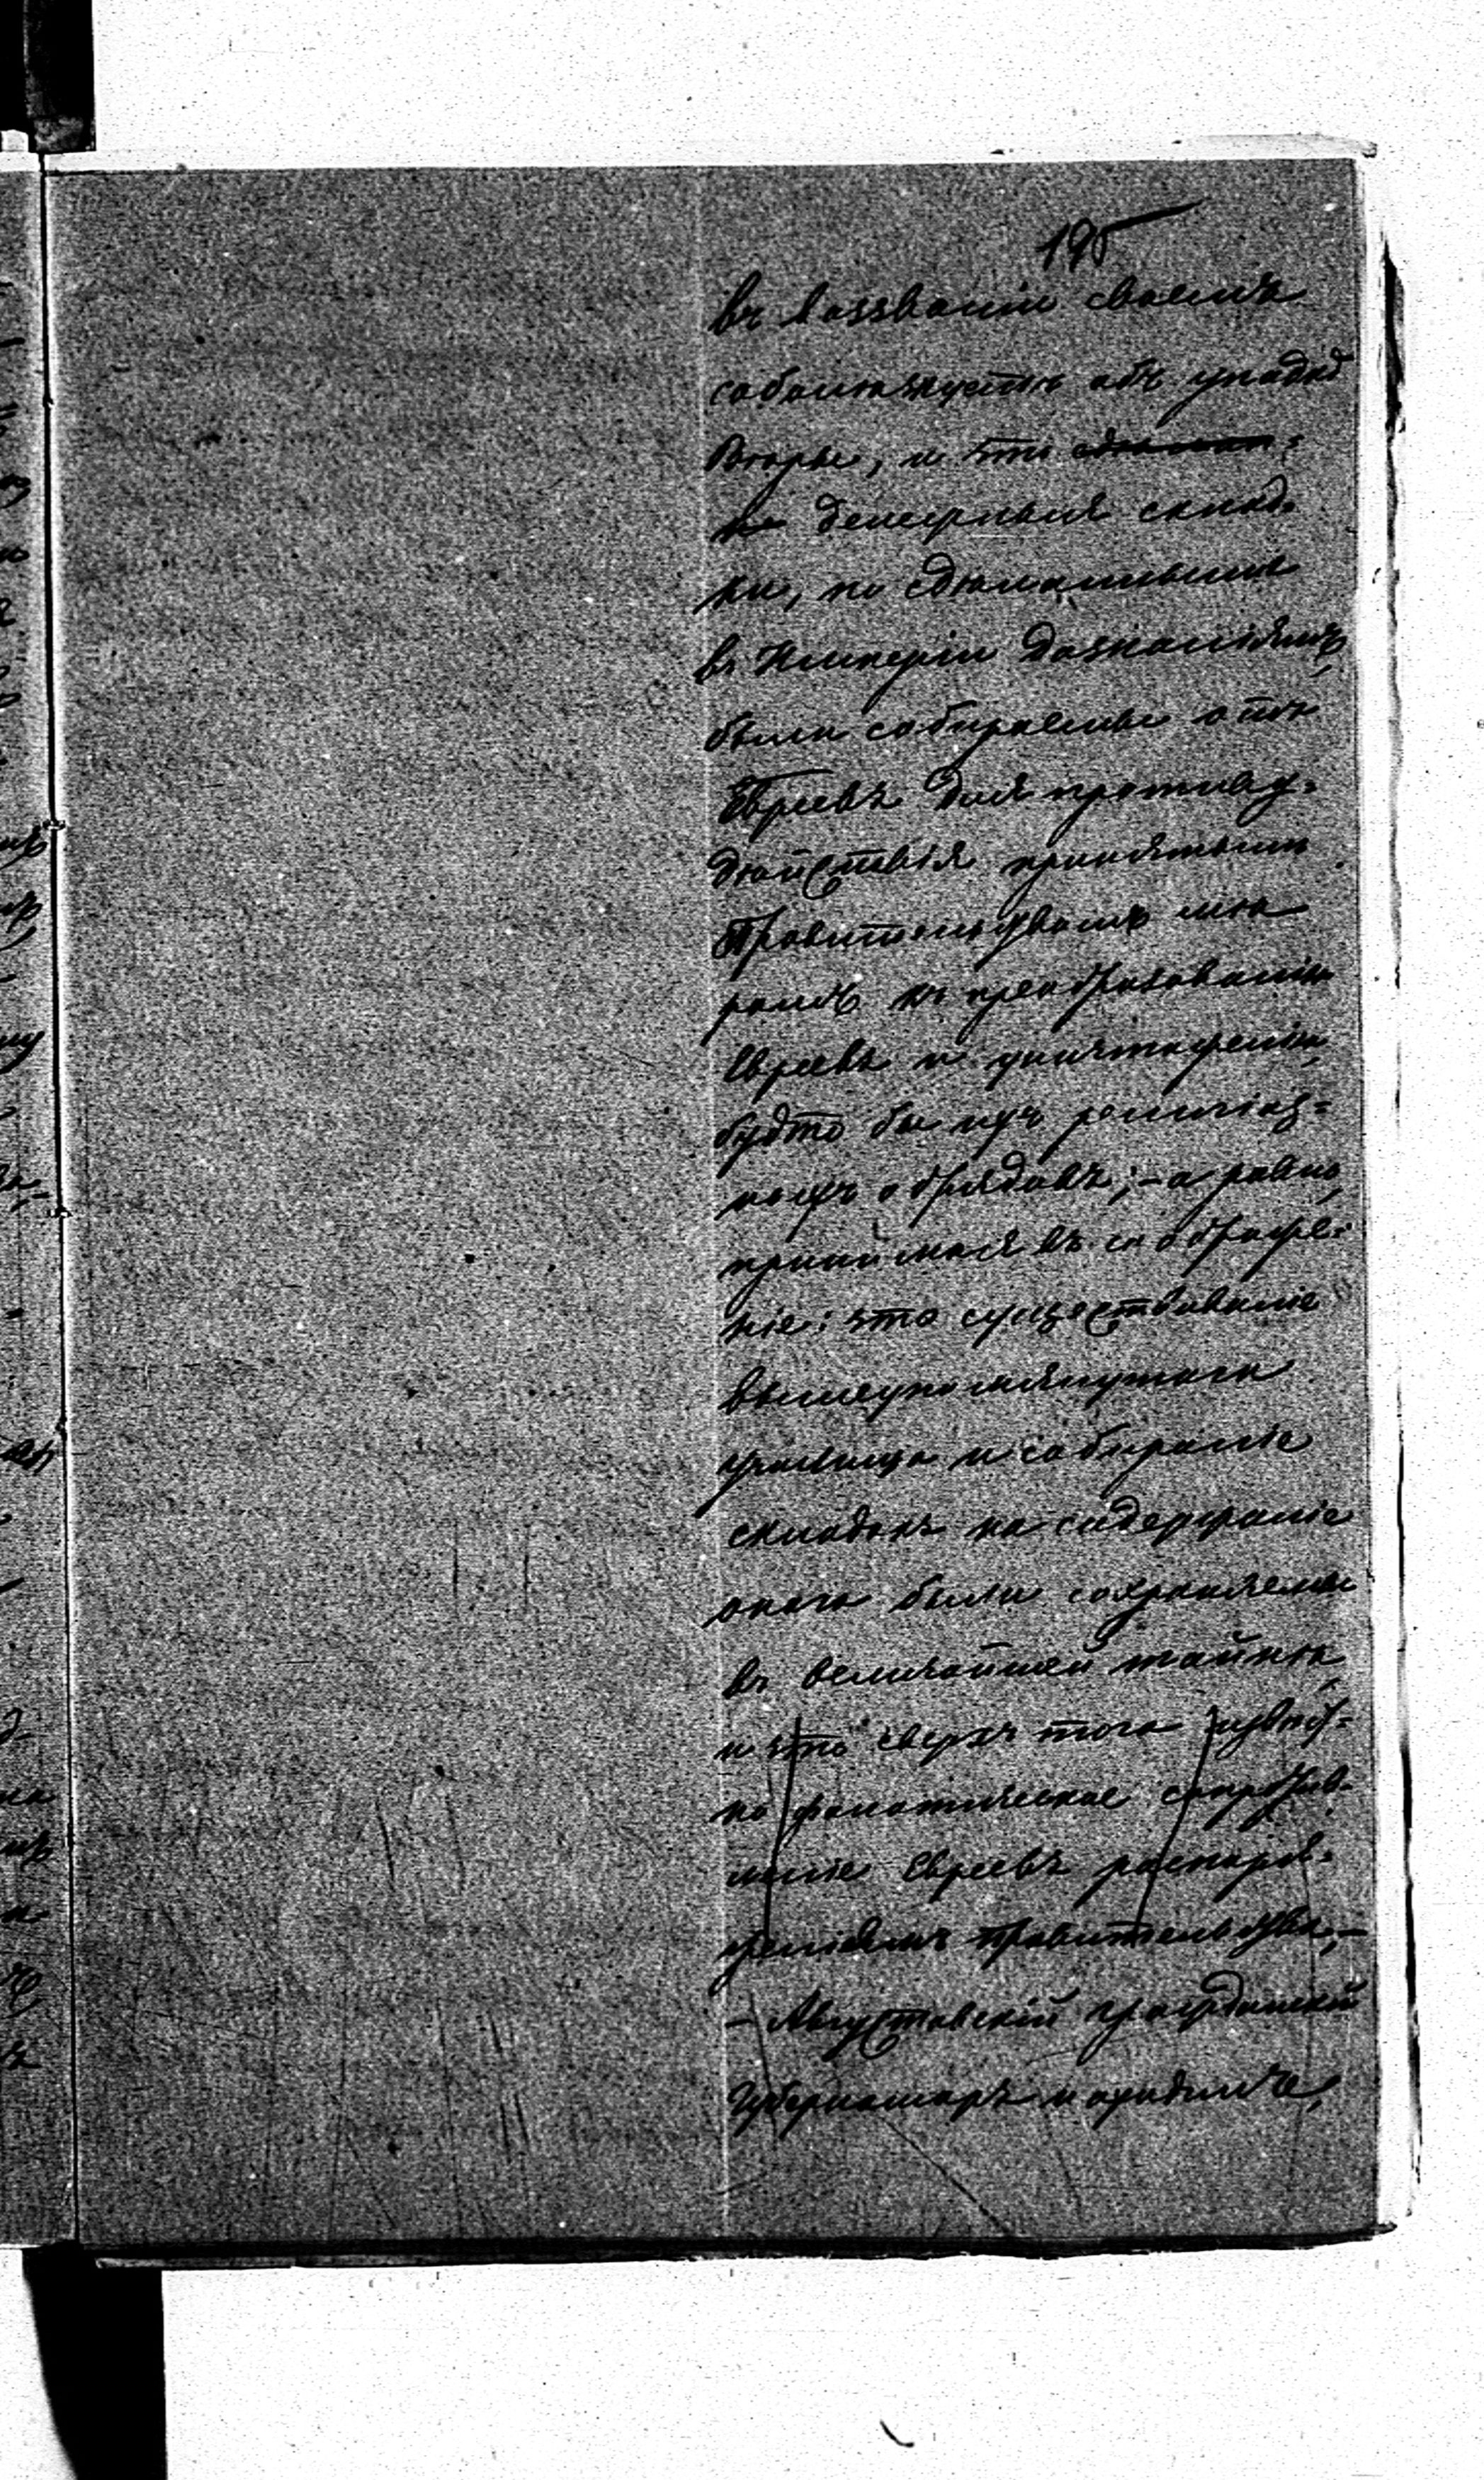 195
въ воззваніи своемъ
соболѣзнуетъ объ упадкѣ
Вѣры, и что
денежныя склад-
ки, по сдѣланнымъ
въ Имперіи дознаніямъ,
были собираемы отъ
Евреевъ для противу-
дѣйствія принятымъ
Правительствомъ мѣ
рамъ къ преобразованію
Евреевъ и уничтоженію
будто бы ихъ религіоз-
ныхъ обрядовъ; - а равно
принимая въ соображе-
ніе: что существованіе
вышеупомянутаго
училища и собираніе
складокъ на содержаніе
онаго были сохраняемы
въ величайшей тайнѣ,
и что сверхъ того извѣст-
но фанатическое сопротив-
леніе Евреевъ распоря-
женіямъ Правительства, -
- Августовскій Гражданскій
Губернаторъ находитъ,